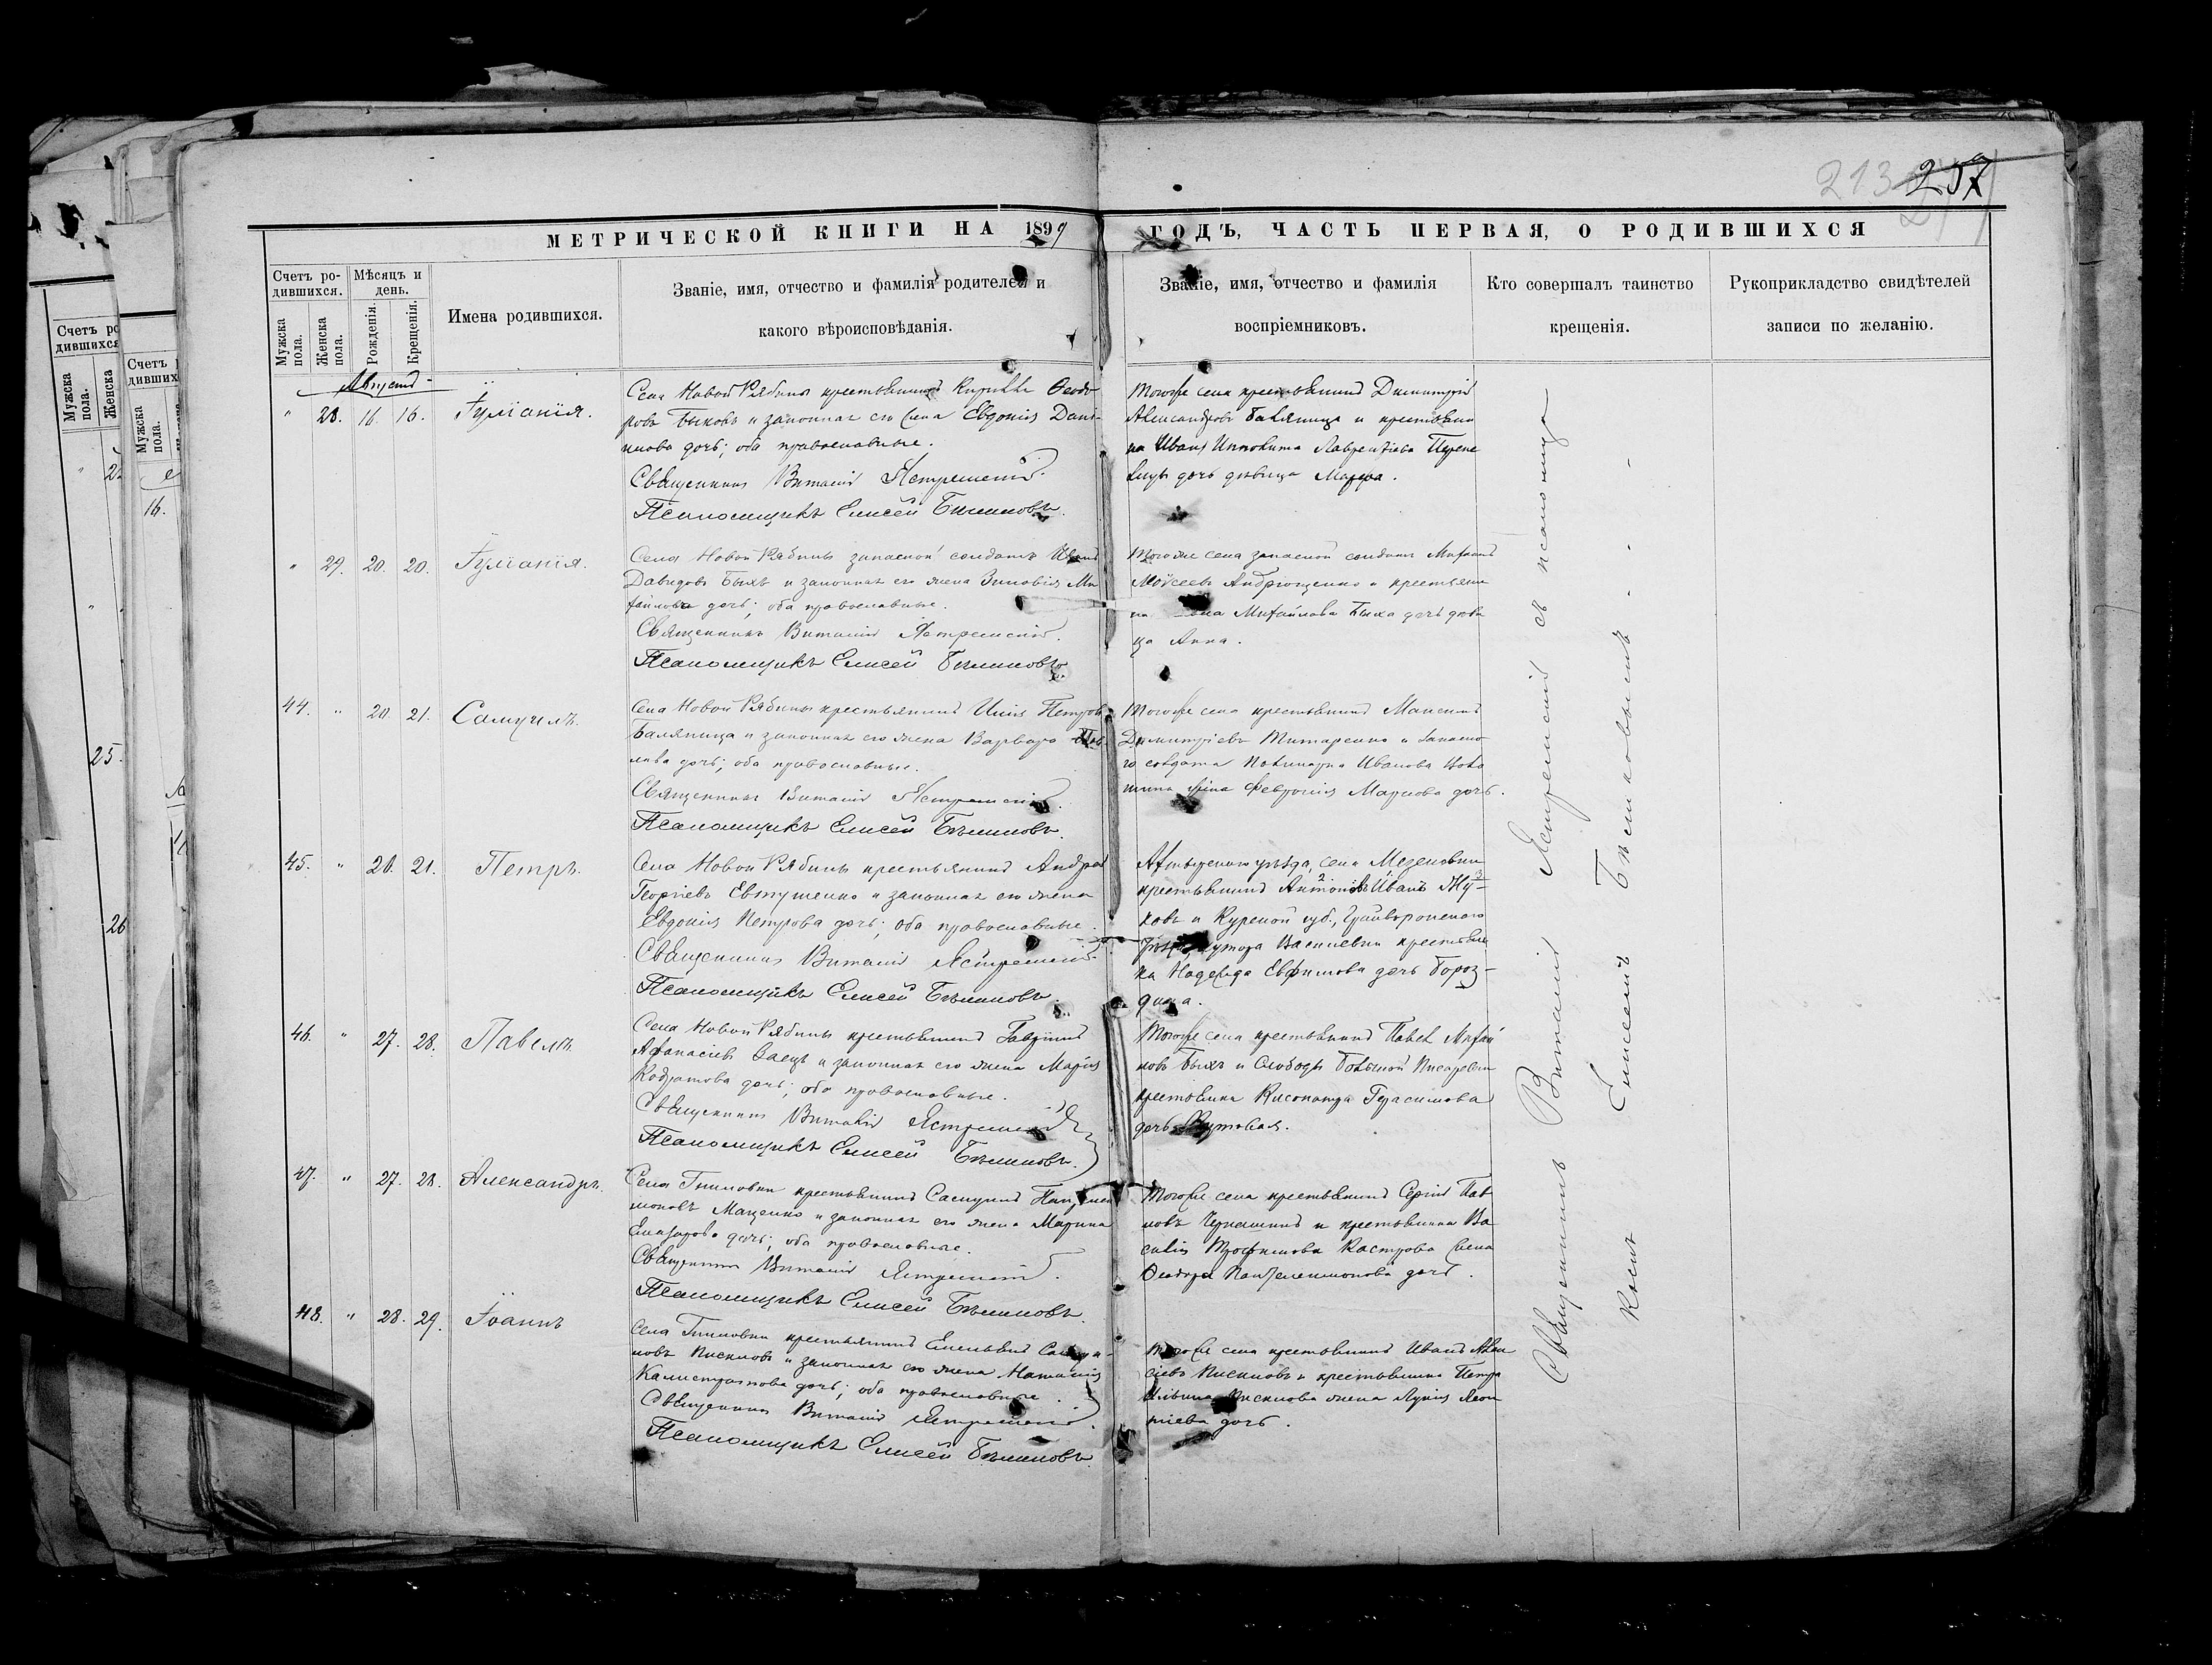 213 257
МЕТРИЧЕСКОЙ КНИГИ НА 1899 ГОДЪ, ЧАСТЬ ПЕРВАЯ, О РОДИВШИХСЯ
Счетъ ро-
дившихся.
Мужска
пола.
Женска
пола.
Мѣсяцъ и
день.
Рожденія.
Крещенія.
Имена родившихся.
Званіе, имя, отчество и фамилія родителей и
какого вѣроисповѣданія.
Званіе, имя, отчество и фамилія
воспріемниковъ.
Кто совершалъ таинство
крещенія.
Рукоприкладство свидѣтелей
записи по желанію.
Августъ
" 28. 16. 16. Іуліанія.
Села Новой Рябины крестьянинъ Кириллъ Ѳеодо-
ровъ Быковъ и законная его жена Евдокія Дани-
илова дочь; оба православные.
Священникъ Виталій Ястремскій.
Псаломщикъ Елисей Бѣликовъ.
Тогоже села крестьянинъ Димитрій
Александровъ Балятица и крестьяни
на Ивана Ипполита Лаврентіева Перепе
лицы дочь дѣвица Марѳа.
" 29. 20. 20. Іуліанія.
Села Новой Рябины запасной солдатъ Иванъ
Давидовъ Быхъ и законная его жена Зиновія Ми
хайлова дочь; оба православные.
Священникъ Виталій Ястремскій.
Псаломщикъ Елисей Бѣликовъ.
Тогоже села запасной солдатъ Михаилъ
Моѵсеевъ Андрющенко и крестьяни
на Михайлова Быха дочь дѣви
ца Анна.
44. " 20. 21. Самуилъ.
Села Новой Рябины крестьянинъ Илія Петровъ
Балятица и законная его жена Варвара Пав
лова дочь; оба православные.
Священникъ Виталій Ястремскій.
Псаломщикъ Елисей Бѣликовъ.
Тогоже села крестьянинъ Максимъ
Димитріевъ Титаренко и запасно-
го солдата Иванова
жена Февронія Маркова дочь.
45. " 20. 21. Петръ.
Села Новой Рябины крестьянинъ Андрей
Георгіевъ Евтушенко и законная его жена
Евдокія Петрова дочь; оба православные.
Священникъ Виталій Ястремскій.
Псаломщикъ Елисей Бѣликовъ.
Ахтырскаго уѣзда, села Мезеновки
крестьянинъ Антоновъ Иванъ Жу-
ковъ и Курской губ., Грайворонскаго
уѣзда, хутора Василевки крестьян
ка Надежда Евфимова дочь Бороз-
дина.
46. " 27. 28. Павелъ.
Села Новой Рябины крестьянинъ Гавріилъ
Аѳанасіевъ Заецъ и законная его жена Марія
Кодратова дочь; оба православные.
Священникъ Виталій Ястремскій
Псаломщикъ Елисей Бѣликовъ.
Тогоже села крестьянинъ Павелъ Михай
ловъ Быхъ и Слободы Большой Писаревки
крестьянка Клеопатра Герасимова
дочь
47. " 27. 28. Александръ.
Села Гниловки крестьянинъ Самуилъ Пантелей
моновъ Маценко и законная его жена Марина
Елазарова дочь; оба православные.
Священникъ Виталій Ястремскій.
Псаломщикъ Елисей Бѣликовъ.
Тогоже села крестьянинъ Сергій Пав
ловъ Чернашинъ и крестьянина Ва
силія Трофимова Кострова жена
Ѳеодора Пантелеимонова дочь.
48. " 28. 29. Іоаннъ
Села Гниловки крестьянинъ Емельянъ Самуи-
ловъ Пискловъ и законная его жена Наталія
Калистратова дочь; оба православные.
Священникъ Виталій Ястремскій.
Псаломщикъ Елисей Бѣликовъ.
Тогоже села крестьянинъ Иванъ Алек
сіевъ Пискловъ и крестьянина Петра
ИльинаПисклова жена Лукія Леон
тіева дочь.
Священникъ Виталій Ястремскій съ псаломщи-
комъ Елисеемъ Бѣликовымъ
Счетъ ро
дившихся
Мужска
пола.
Женска
25.
26
Счетъ р
дивших
Мужска
пола.
16.